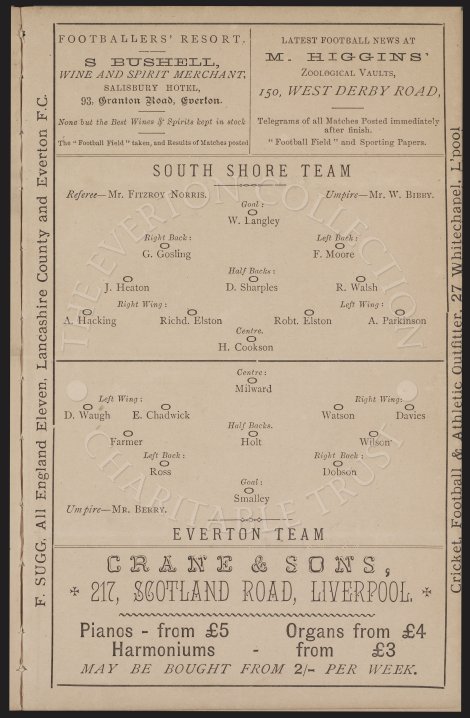 FOOTBALLERS' RESORT.
S BUSHELL,
WINE AND SPIRIT MERCHANT,
SALISBURY HOTEL,
93, Granton Road, Everton.
None but the Best Wines & Spirits kept in stock
The "Football Field" taken, and Results of Matches posted
LATEST FOOTBALL NEWS AT
M. HIGGINS'
ZOOLOGICAL VAULTS,
150, WEST DERBY ROAD,
Telegrams of all Matches Posted immediately
after finish.
"Football Field" and Sporting Papers.
SOUTH SHORE TEAM
Referee—MR. FITZROY NORRIS. Umpire—MR. W. BIBBY.
Goal:
W. Langley
Right Back: Left Back:
G. Gosling F. Moore
Half Backs:
J. Heaton D. Sharples R. Walsh
Right Wing: Left Wing:
A. Hacking Richd. Elston Robt. Elston A. Parkinson
Centre.
H. Cookson
Centre:
Milward
Left Wing: Right Wing:
D. Waugh E. Chadwick Watson Davies
Half Backs.
Farmer Holt Wilson
Left Back: Right Back:
Ross Dobson
Goal:
Smalley
Umpire—MR. BERRY.
EVERTON TEAM
CRANE & SONS,
217, SCOTLAND ROAD, LIVERPOOL.
Pianos - from £5 Organs from £4
Harmoniums - from £3
MAY BE BOUGHT FROM 2/- PER WEEK.
F. SUGG, All England Eleven, Lancashire County and Everton F.C.
Cricket, Football & Athletic Outfitter, 27 Whitechapel, L'pool
THE EVERTON COLLECTION
CHARITABLE TRUST